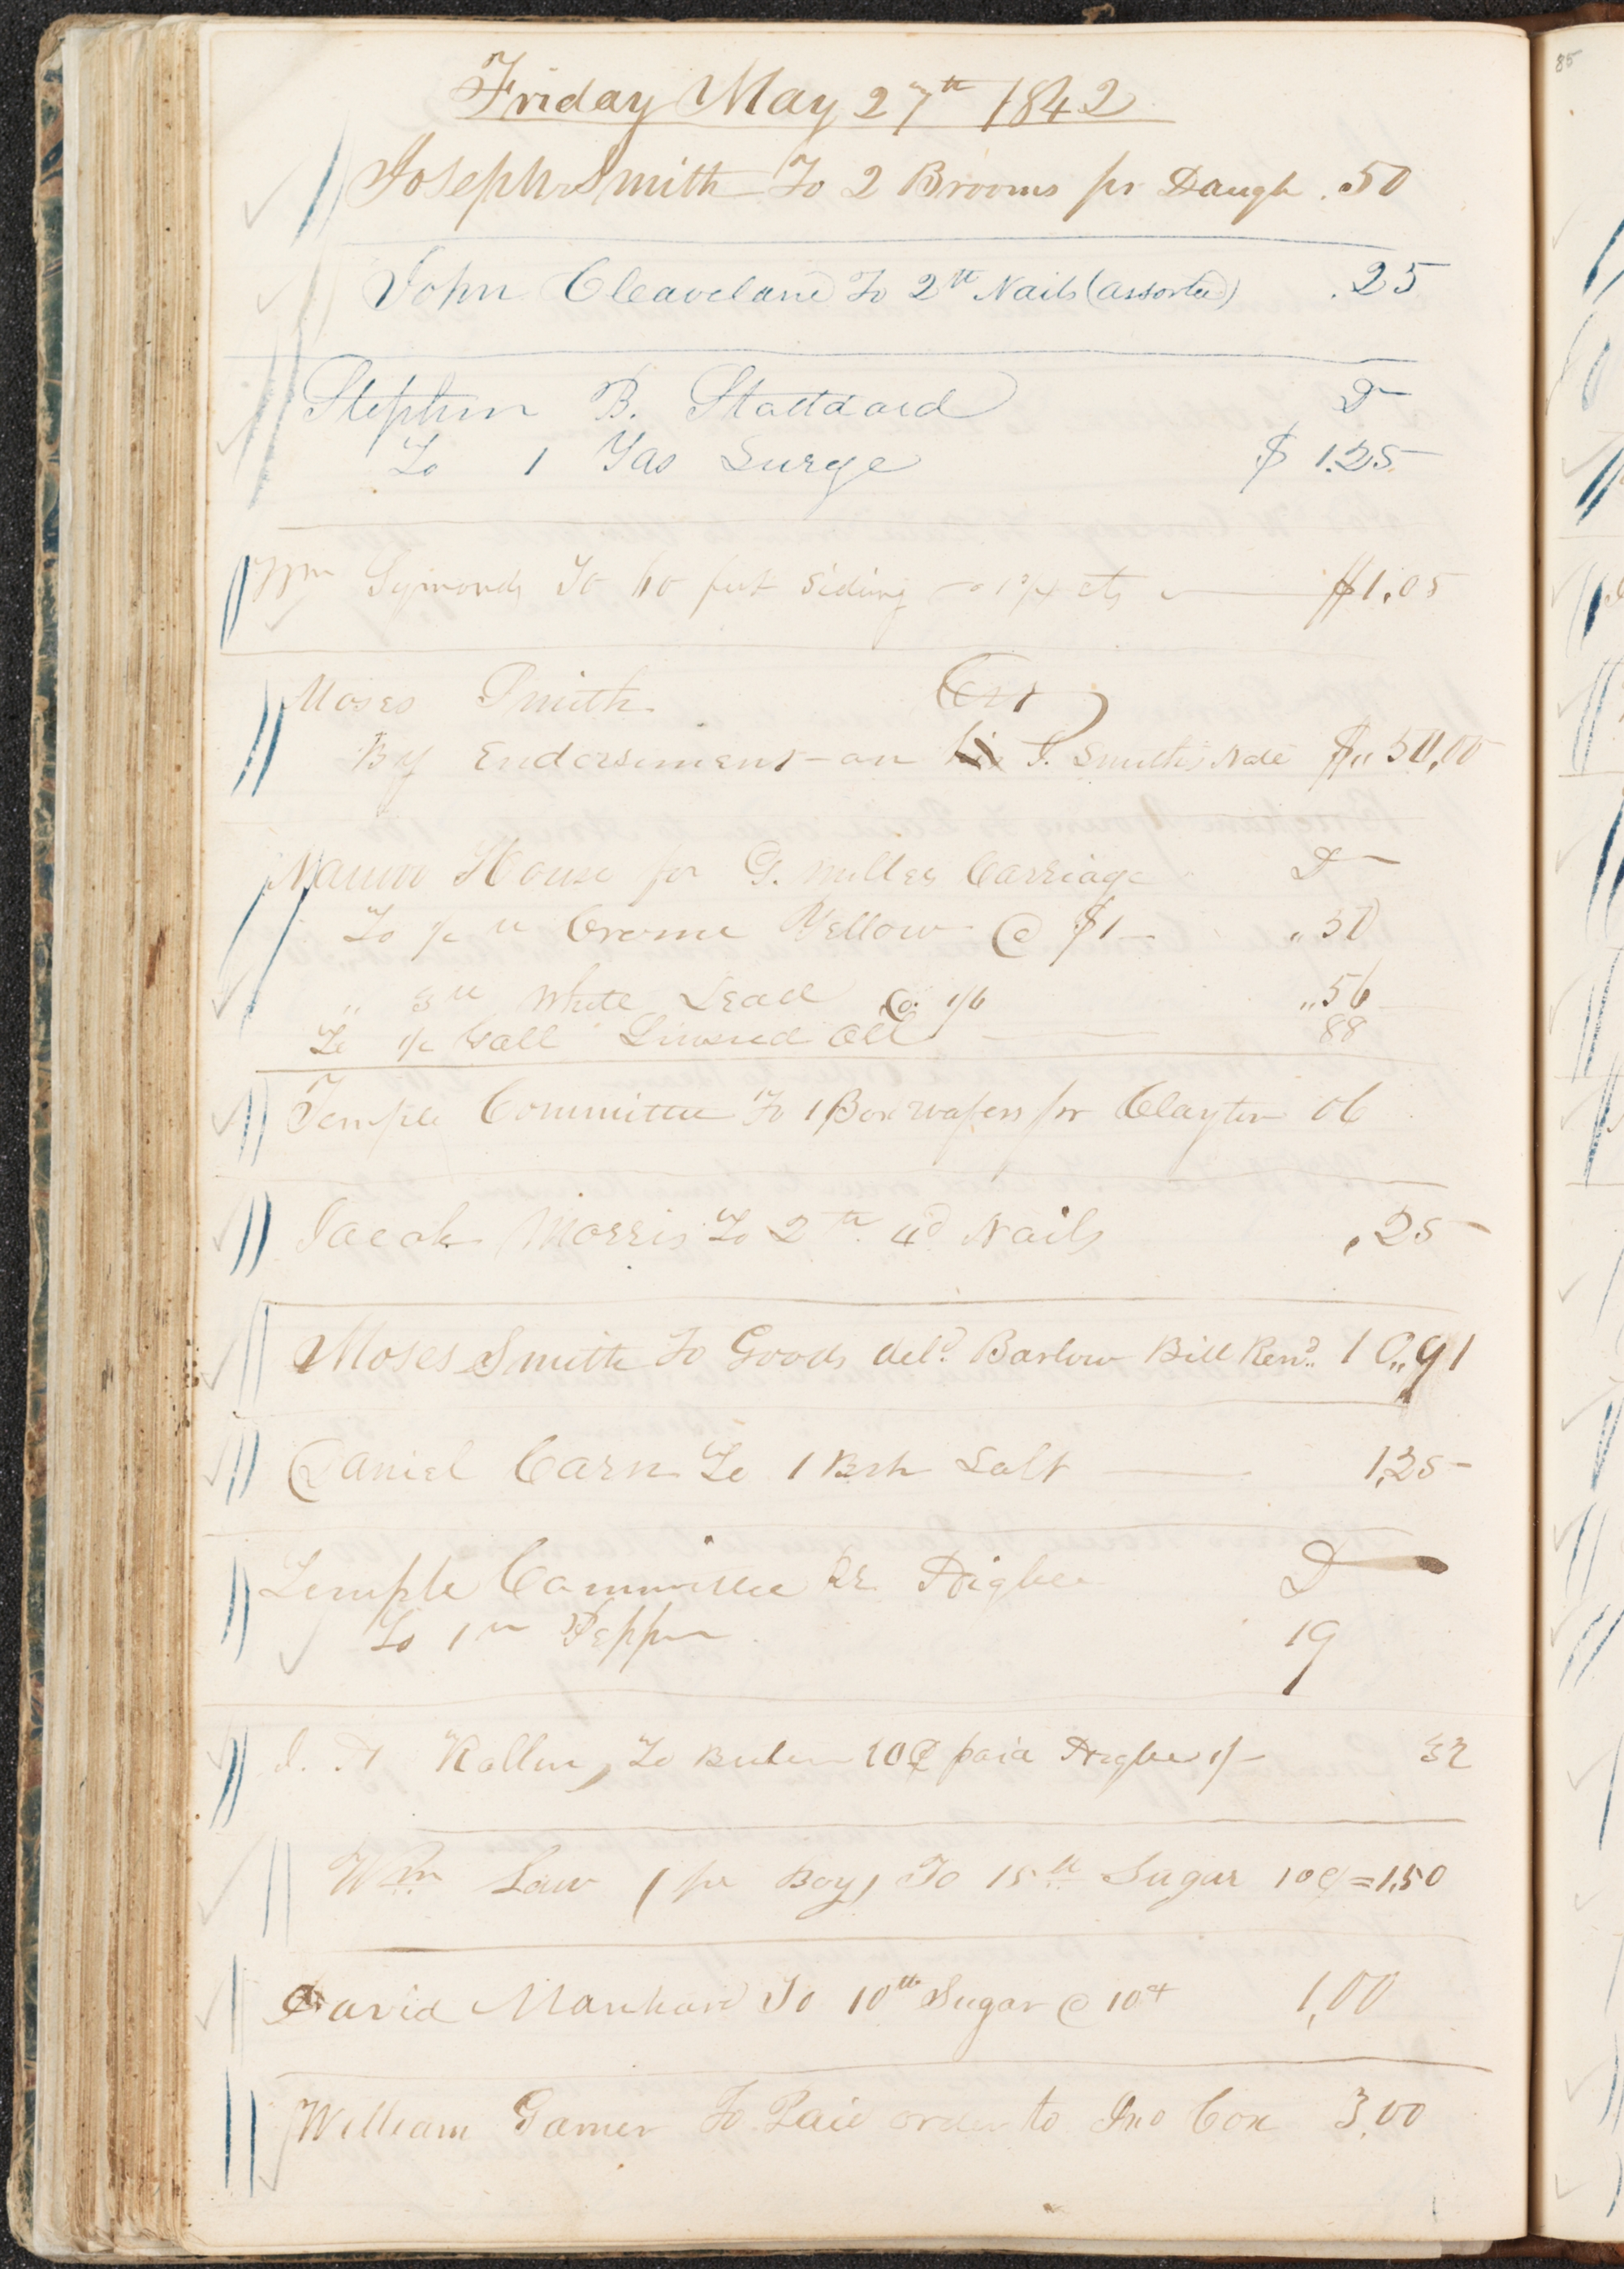 Friday May 27th 1842
Joseph Smith To 2 Brooms pr Daugh .50
John Cleaveland To 2 lb Nails (assorted) .25
Stephen B. Stoddard Dr
To 1 Gas Surge $ 1.25
Wm Symonds To 60 feet Siding 1 3/4 cts $1.05
Moses Smith Cr
By Endorsement on his J. Smiths Note $ 50,00
Nauvoo House for G. Miller Carriage Dr
To 1/2 lb Crome Yellow @ $1 — ,, 50
,, 3 lb White Lead @ 1/6 ,, 56
To 1/2 Gall Linseed Oil — 88
Temple Committee To 1 Box wafers for Clayton 06
Jacob Morris To 2 lb 4d Nails .25
Moses Smith To Goods deld. Barlow Bill Rend. 10,,91
Daniel Carn To 1 Bsh Salt — 1,25
Temple Committee Higbee Dr
To 1 lb Pepper 19
To 10¢ paid Higbee 1/-
Wm Law (per Boy) To 15 lb Sugar 10¢ = 1.50
David Manhard To 10 lb Sugar @ 10 1,00
William Garner To Paid order to Jno Cox 3,00
85